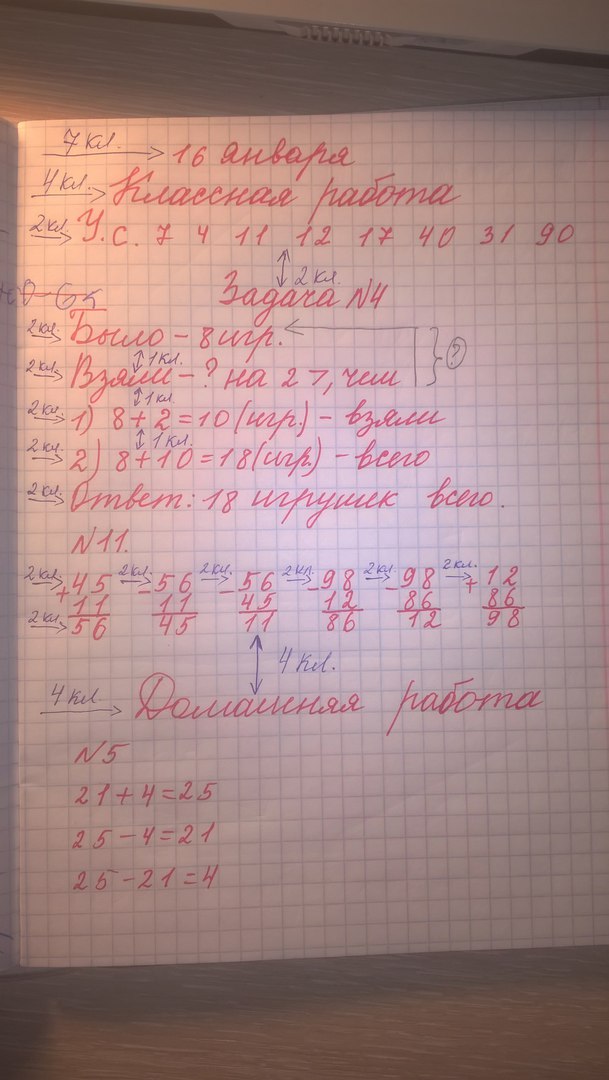 7 кл. 16 января
4 кл. Классная работа
2 кл. У.с. 7 4 11 12 17 40 31 90
2 кл.
Задача №4
2 кл. Было - 8 игр.
1 кл.
2 кл. Взяли - ? на 2 >, чем ?
1 кл.
2 кл. 1) 8 + 2 = 10 (игр.) - взяли
1 кл.
2 кл. 2) 8 + 10 = 18 (игр.) - всего
2 кл. Ответ: 18 игрушек всего.
№11.
2 кл. + 45 2 кл. - 56 2 кл. - 56 2 кл. - 98 2 кл. - 98 2 кл. + 12
11 11 45 12 86 86
2 кл. 56 45 11 86 12 98
4 кл.
4 кл. Домашняя работа
№5
21 + 4 = 25
25 - 4 = 21
25 - 21 = 4